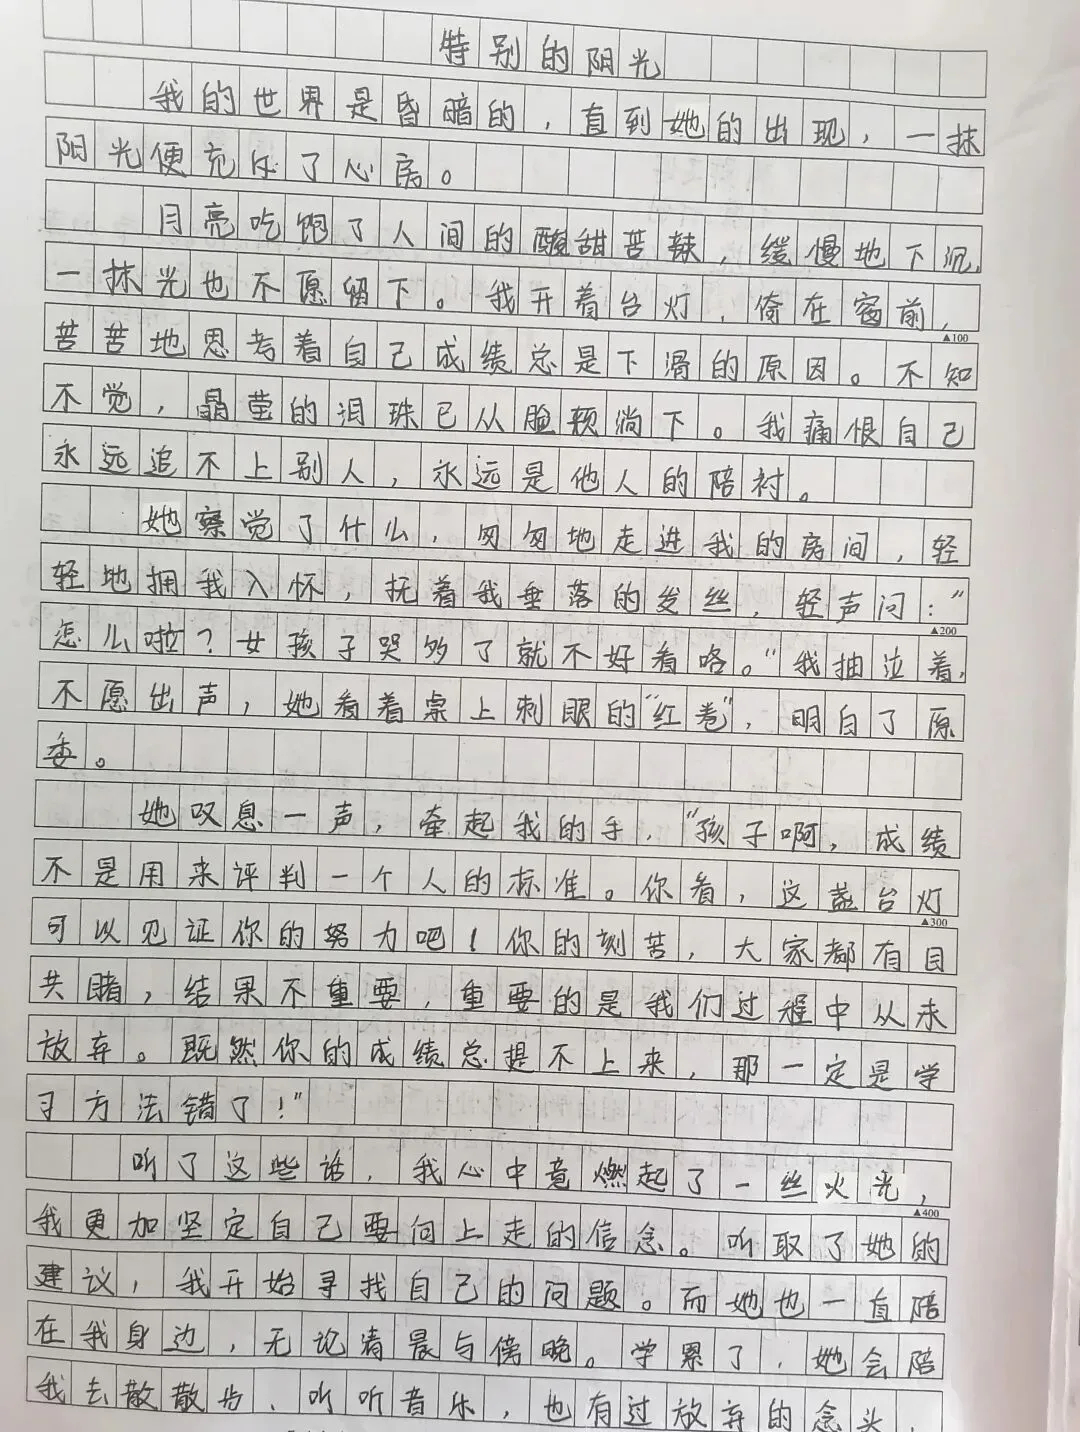 特别的阳光
我的世界是昏暗的，直到她的出现，一抹
阳光便充斥了心房。
月亮吃饱了人间的酸甜苦辣，缓慢地下沉，
一抹光也不愿留下。我开着台灯，倚在窗前，
▲100
苦苦地思考着自己成绩总是下滑的原因。不知
不觉，晶莹的泪珠已从脸颊淌下。我痛恨自己
永远追不上别人，永远是他人的陪衬。
她察觉了什么，匆匆地走进我的房间，轻
轻地拥我入怀，抚着我垂落的发丝，轻声问："
▲200
怎么啦？女孩子哭多了就不好看咯。"我抽泣着，
不愿出声，她看着桌上刺眼的"红卷"，明白了原
委。
她叹息一声，牵起我的手，"孩子啊，成绩
不是用来评判一个人的标准。你看，这盏台灯
▲300
可以见证你的努力吧！你的刻苦，大家都有目
共睹，结果不重要，重要的是我们过程中从未
放弃。既然你的成绩总提不上来，那一定是学
习方法错了！"
听了这些话，我心中竟燃起了一丝火光，
▲400
我更加坚定自己要向上走的信念。听取了她的
建议，我开始寻找自己的问题。而她也一直陪
在我身边，无论清晨与傍晚。学累了，她会陪
我去散散步、听听音乐，也有过放弃的念头，